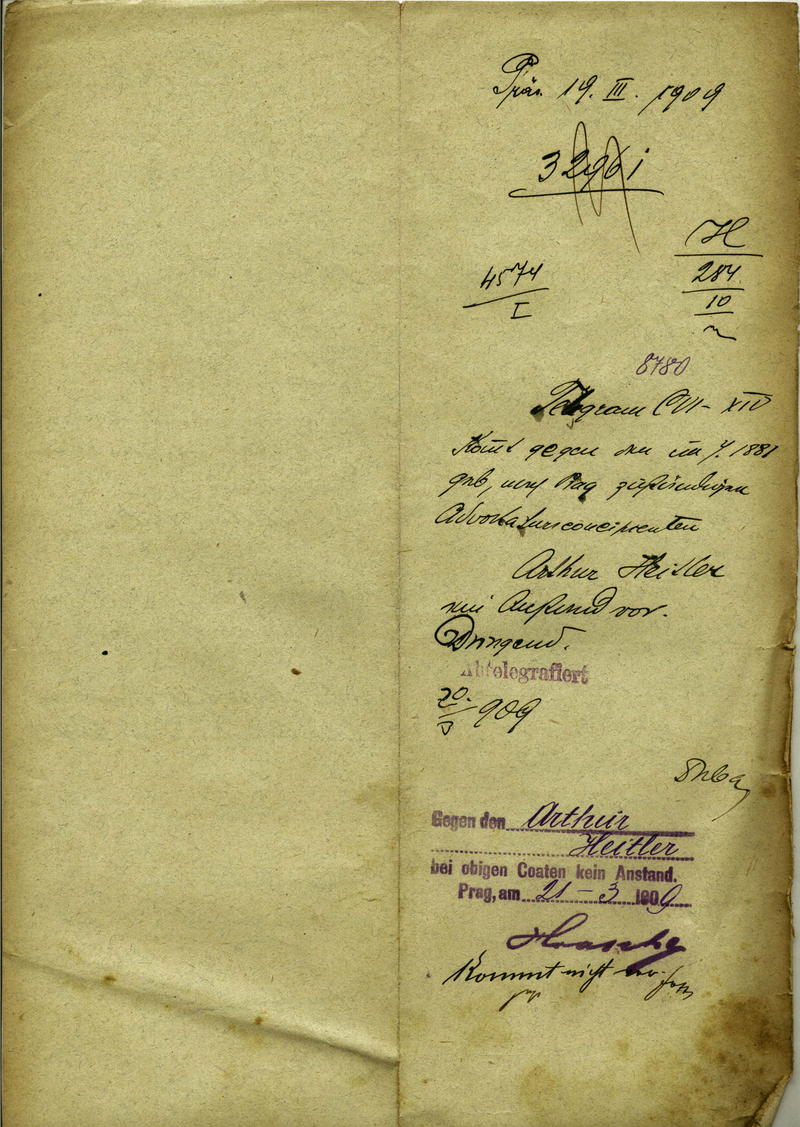 Präs. 19. III. 1909
32961
H
4574
284
I
10
8780
Telegram XIV
Komt gegen den im J. 1881
geb, nach Prag zuständigen
Advokaturscocipienten
Arthur Heitler
ein Anstand vor.
Dringend.
Abtelegrafiert
20./3 909
Gegen den Arthur
Heitler
bei obigen Coaten kein Anstand.
Prag, am 21 - 3 1909
Kommt nicht vor.